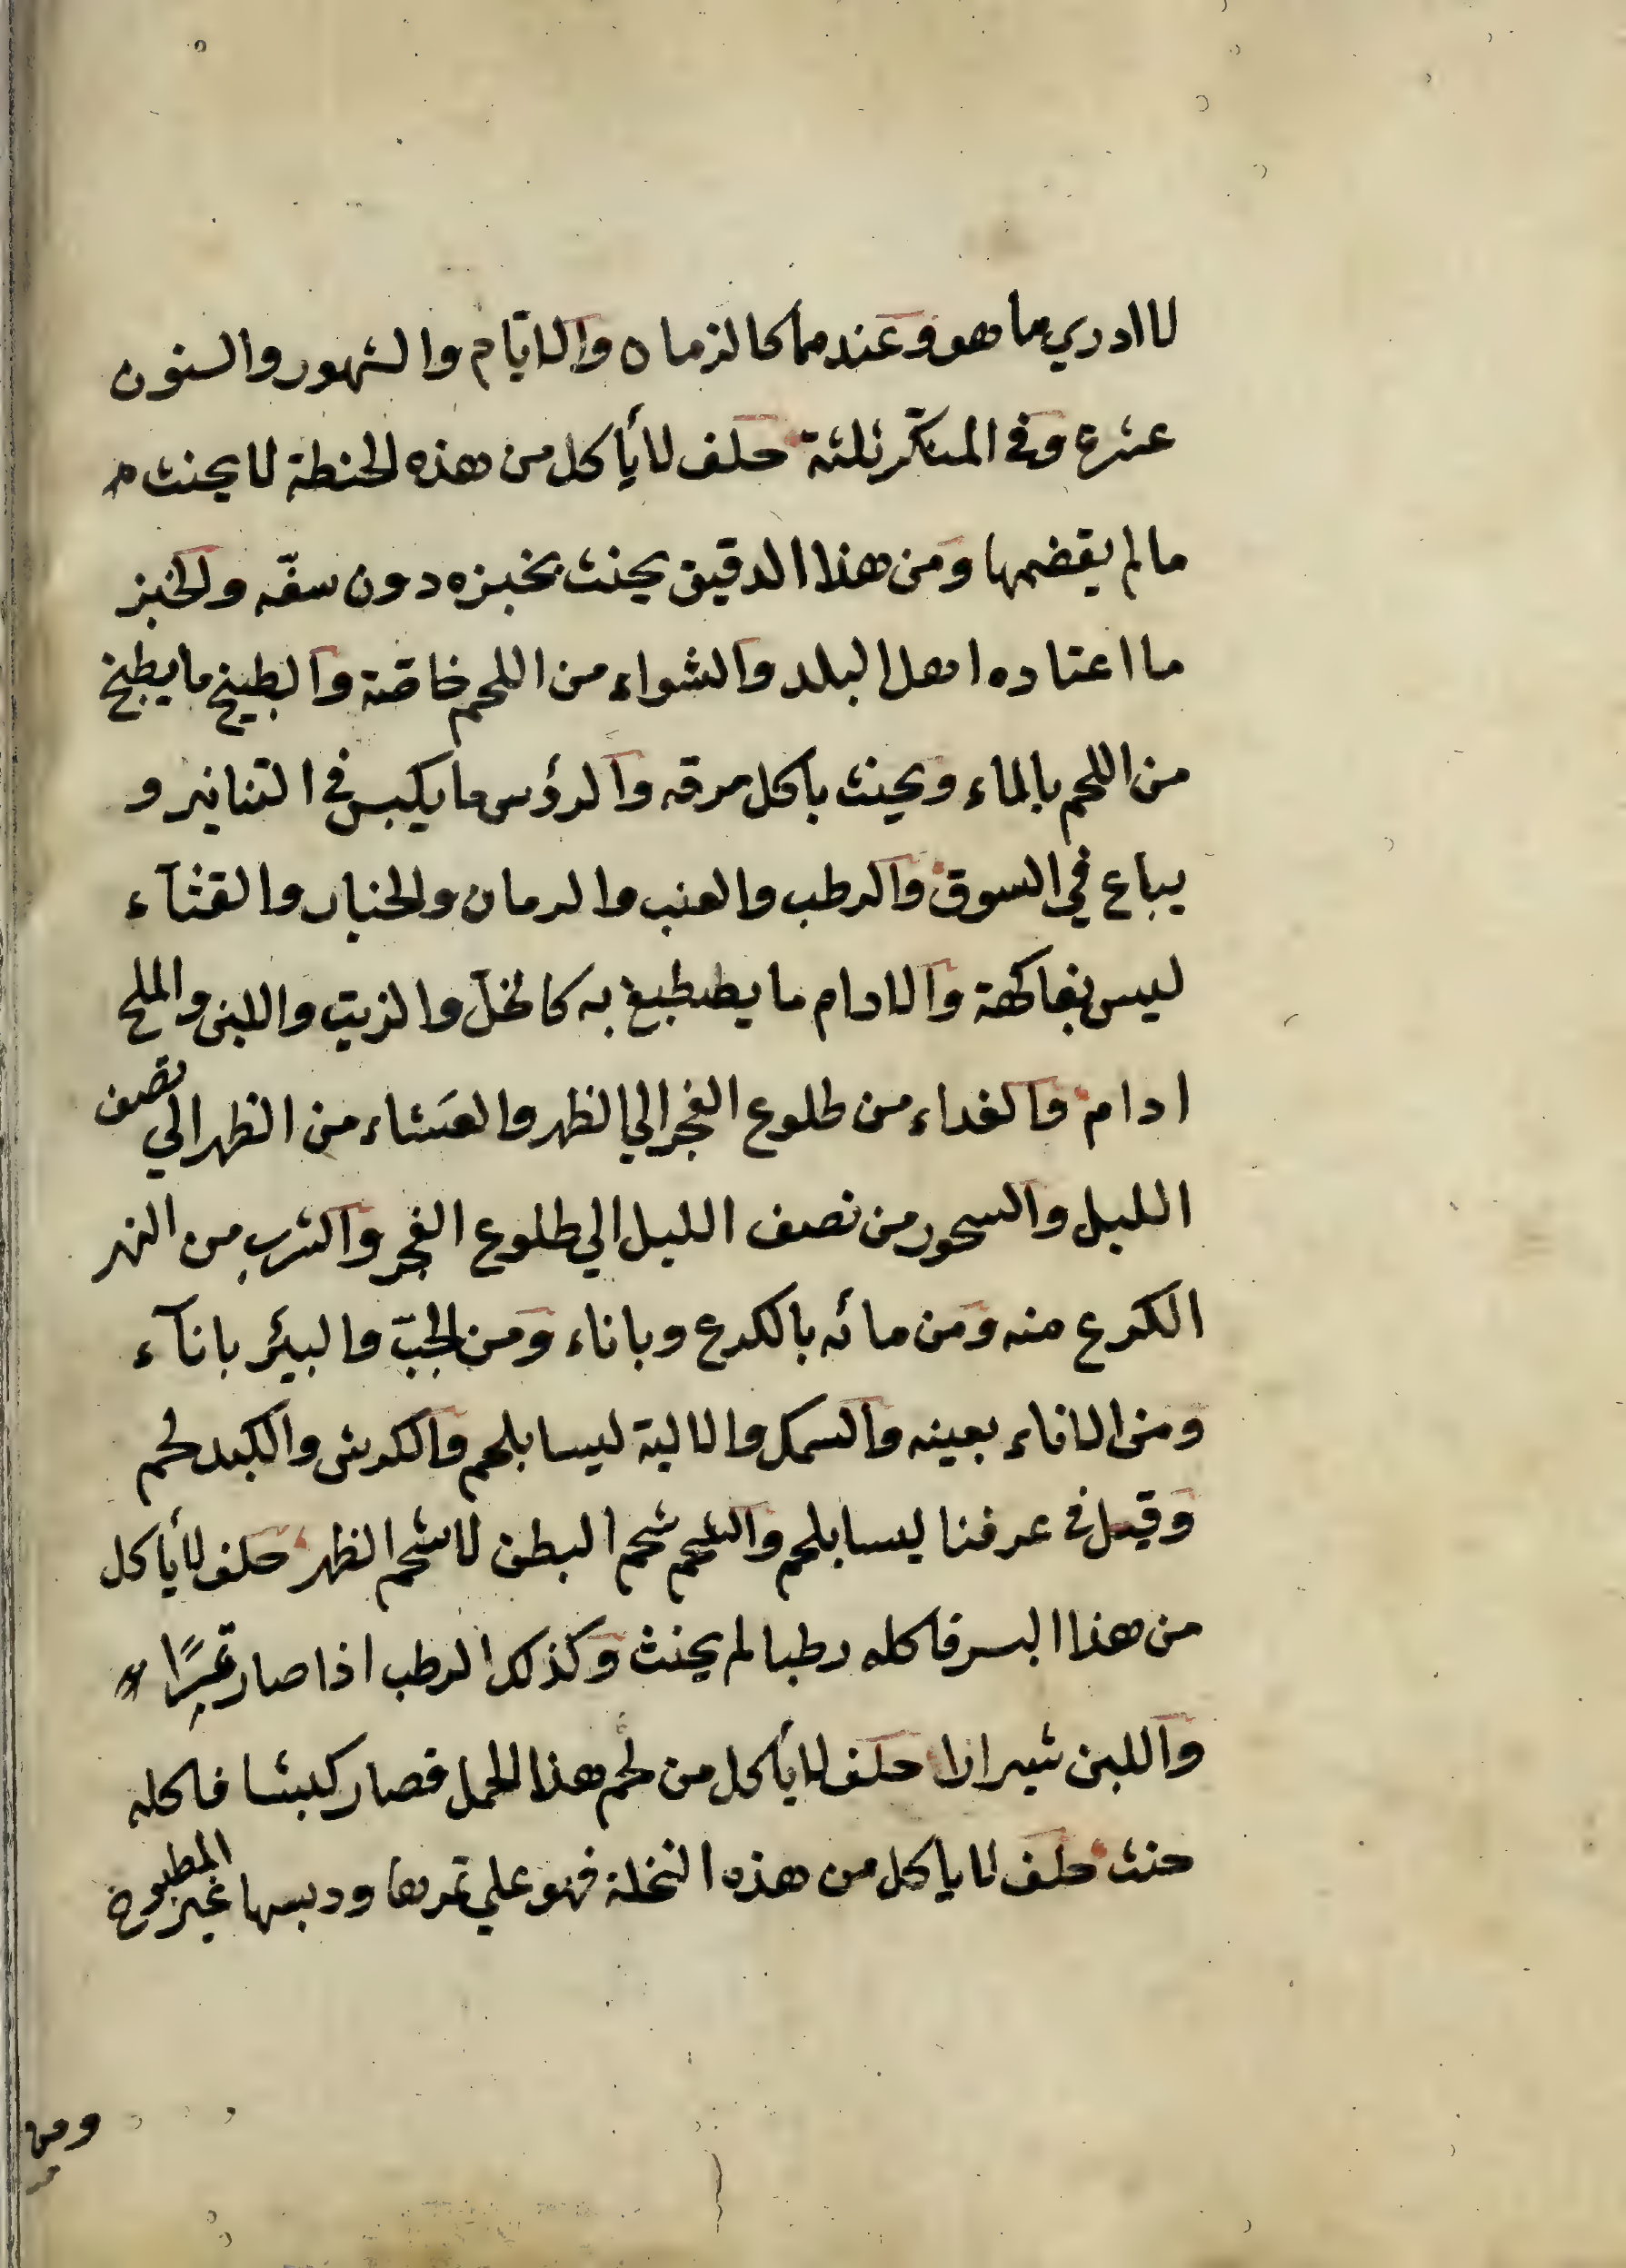 لا ادري ما هو وعندهما كالزمان والايّام والشهور والسنون
عشرة وفي المنكّر ثلثة حلف لا يأكل من هذه الحنطة لا يحنث
ما لم يقضمها ومن هذا الدقيق يحنث بخبزه دون سفّه والخبز
ما اعتاده اهل البلد والشواء من اللحم خاصّة والطبيخ ما يطبخ
من اللحم بالماء ويحنث باكل مرقه والرؤس ما يكبس في التنانير و
يباع في السوق والرطب والعنب والرمان والخيار والقثآء
ليس بفاكهة والادام ما يصطبغ به كالخلّ والزيت واللبن والملح
ادام والغداء من طلوع الفجر الي الظهر والعَشاء من الظهر الي نصف
الليل والسحور من نصف الليل الي طلوع الفجر والشرب من النهر
الكرع منه ومن مائه بالكرع وباناء ومن الجبّ والبئر بانآء
ومن الاناء بعينه والسمك والالية ليسا بلحم والكرش والكبد لحم
وقيل في عرفنا ليسا بلحم والشحم شحم البطن لا شحم الظهر حلف لا يأكل
من هذا البسر فاكله رطبا لم يحنث وكذلك الرطب اذا صار تمرًا
واللبن شيرازا حلف لا يأكل من لحم هذا الحمل فصار كبشا فاكله
حنث حلف لا ياكل من هذه النخلة فهو علي تمرها ودبسها غير المطبوخ
ومن